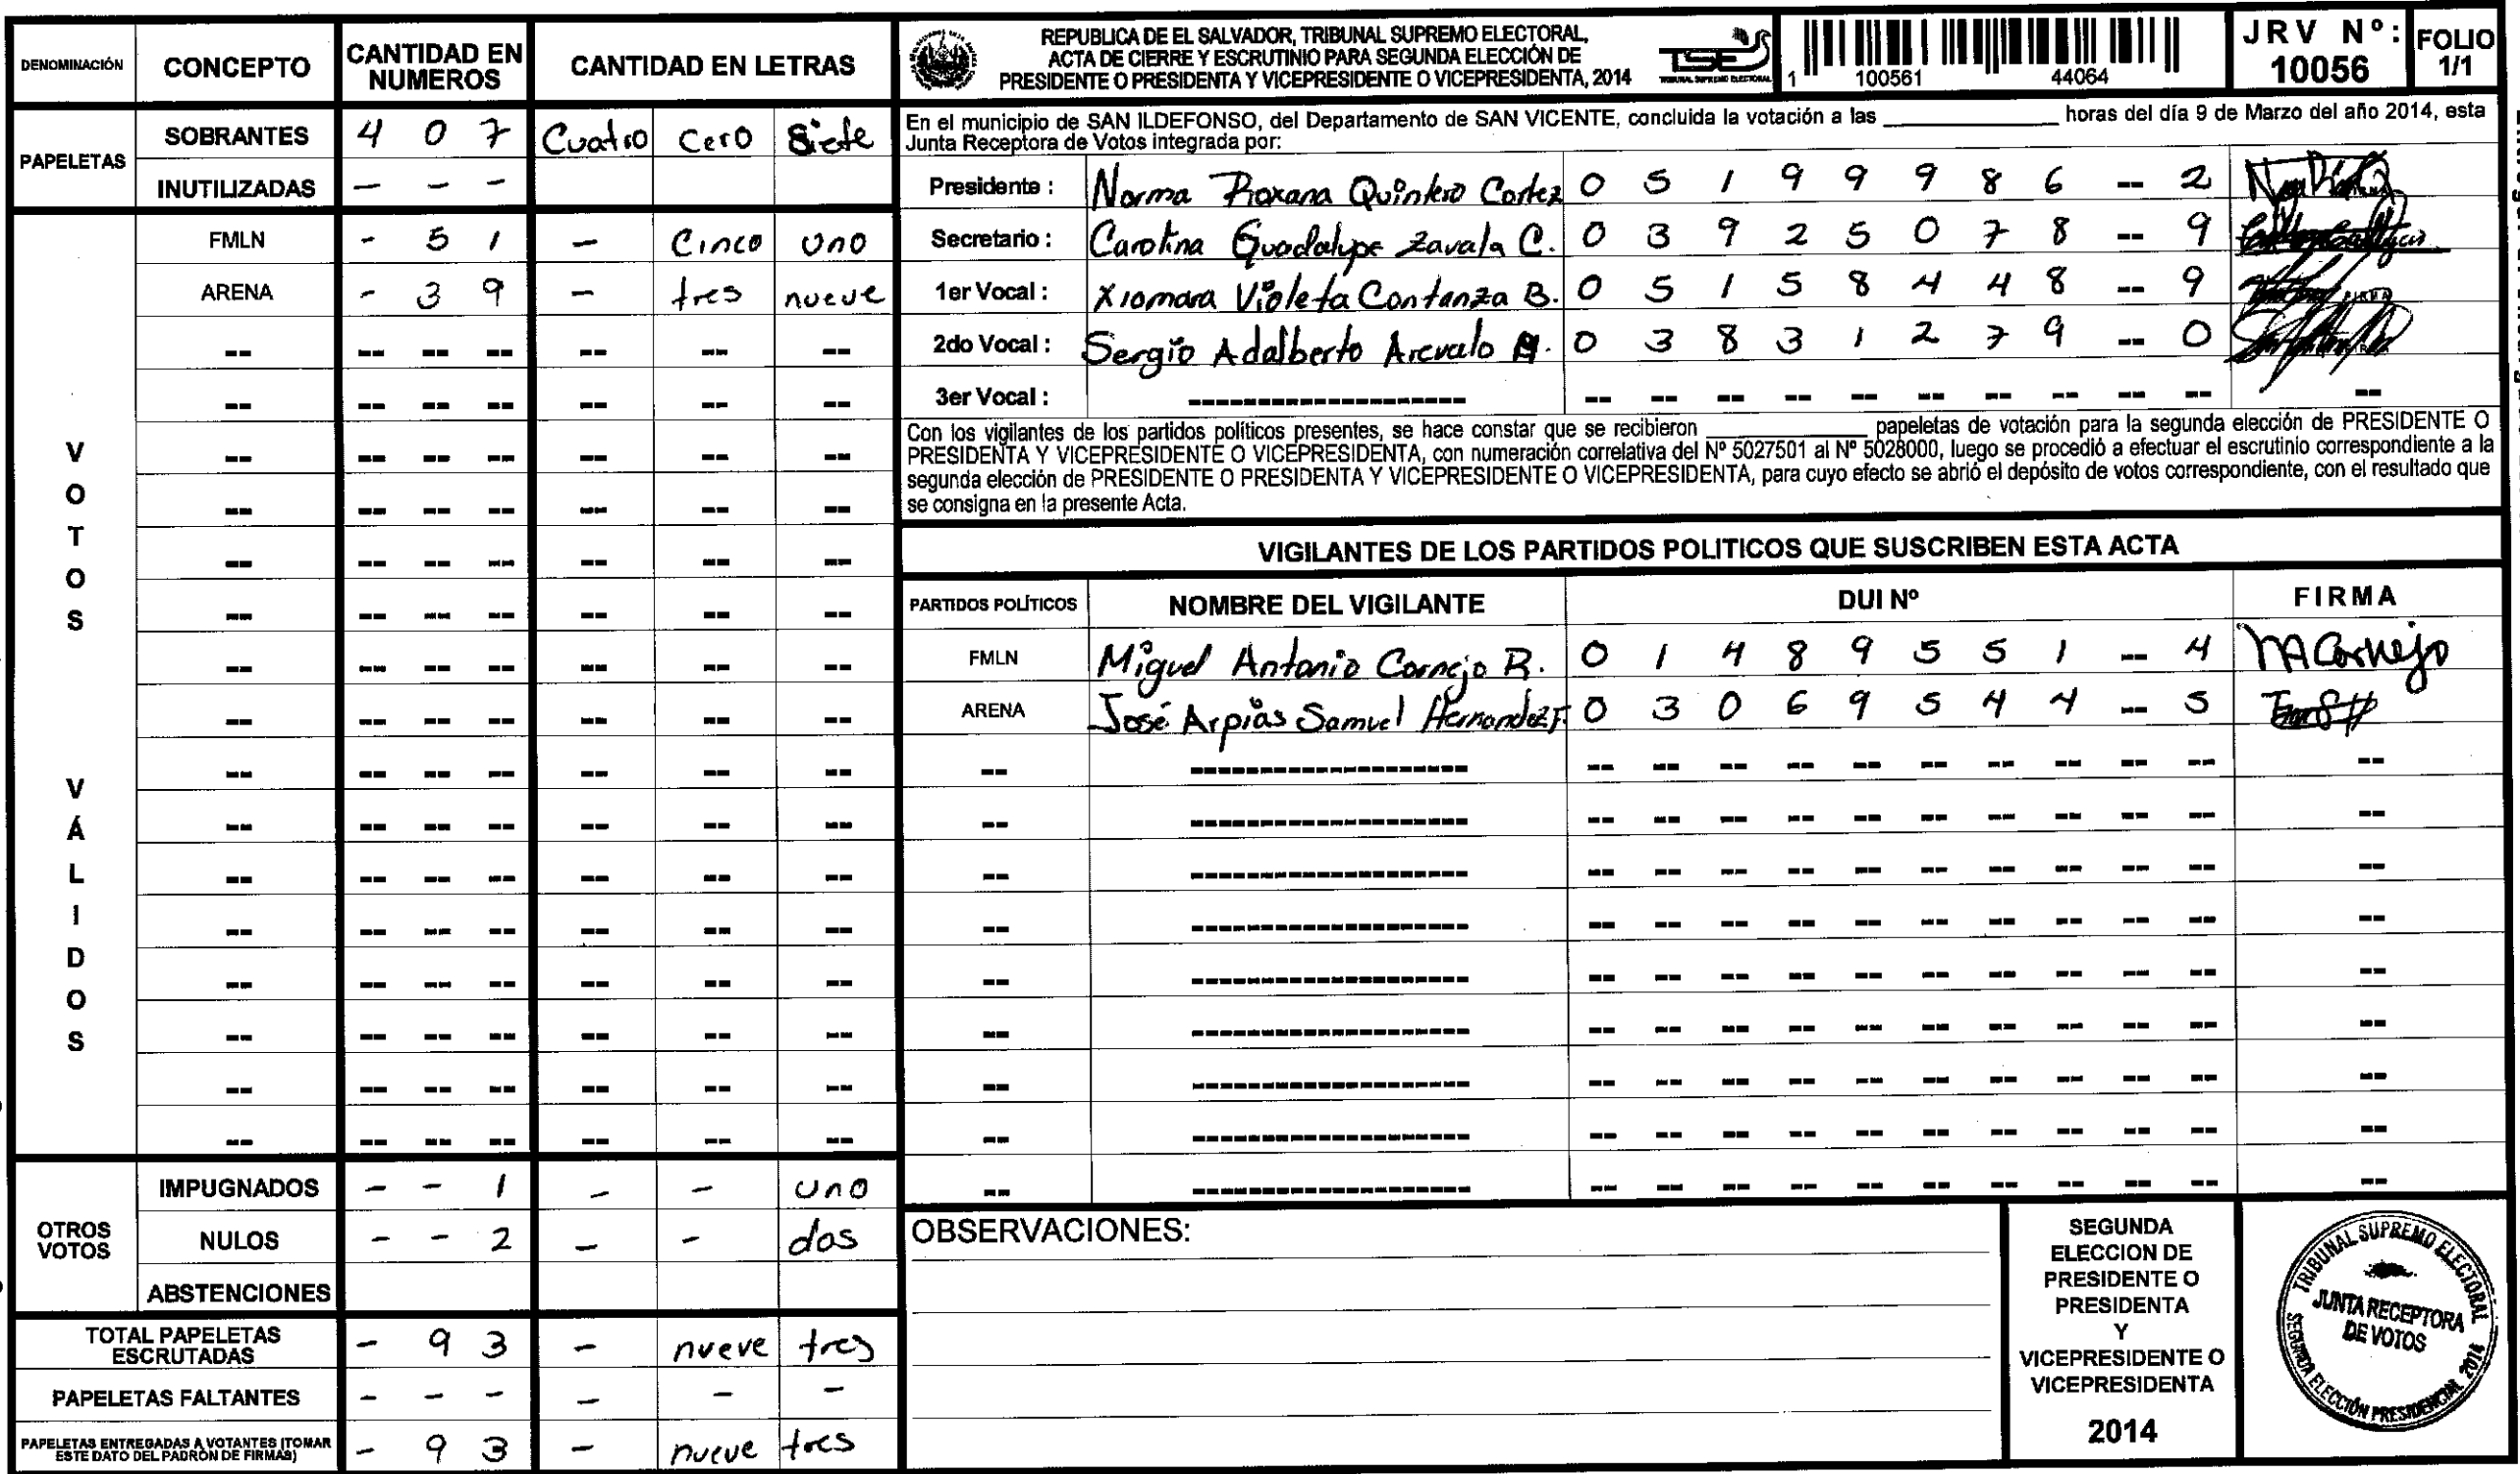 DENOMINACIÓN CONCEPTO CANTIDAD EN NUMEROS CANTIDAD EN LETRAS
PAPELETAS
SOBRANTES 4 0 7 Cuatro Cero Siete
INUTILIZADAS - - -
VOTOS VÁLIDOS
FMLN - 5 1 - Cinco uno
ARENA - 3 9 - tres nueve
-- -- -- -- -- -- --
-- -- -- -- -- -- --
-- -- -- -- -- -- --
-- -- -- -- -- -- --
-- -- -- -- -- -- --
-- -- -- -- -- -- --
-- -- -- -- -- -- --
-- -- -- -- -- -- --
-- -- -- -- -- -- --
-- -- -- -- -- -- --
-- -- -- -- -- -- --
-- -- -- -- -- -- --
-- -- -- -- -- -- --
-- -- -- -- -- -- --
-- -- -- -- -- -- --
-- -- -- -- -- -- --
OTROS VOTOS
IMPUGNADOS - - 1 - - uno
NULOS - - 2 - - dos
ABSTENCIONES
TOTAL PAPELETAS ESCRUTADAS - 9 3 - nueve tres
PAPELETAS FALTANTES - - - - - -
PAPELETAS ENTREGADAS A VOTANTES (TOMAR ESTE DATO DEL PADRÓN DE FIRMAS) - 9 3 - nueve tres
REPUBLICA DE EL SALVADOR, TRIBUNAL SUPREMO ELECTORAL,
ACTA DE CIERRE Y ESCRUTINIO PARA SEGUNDA ELECCIÓN DE
PRESIDENTE O PRESIDENTA Y VICEPRESIDENTE O VICEPRESIDENTA, 2014
TSE
TRIBUNAL SUPREMO ELECTORAL
1 100561 44064
JRV Nº: 10056
FOLIO 1/1
En el municipio de SAN ILDEFONSO, del Departamento de SAN VICENTE, concluida la votación a las ____________ horas del día 9 de Marzo del año 2014, esta
Junta Receptora de Votos integrada por:
Presidente : Norma Roxana Quintero Cortez 0 5 1 9 9 9 8 6 -- 2
Secretario : Carolina Guadalupe Zavala C. 0 3 9 2 5 0 7 8 -- 9
1er Vocal : Xiomara Violeta Contanza B. 0 5 1 5 8 4 4 8 -- 9
2do Vocal : Sergio Adalberto Arevalo 0 3 8 3 1 2 7 9 -- 0
3er Vocal : -------------------- -- -- -- -- -- -- -- -- -- -- --
Con los vigilantes de los partidos políticos presentes, se hace constar que se recibieron ____________ papeletas de votación para la segunda elección de PRESIDENTE O
PRESIDENTA Y VICEPRESIDENTE O VICEPRESIDENTA, con numeración correlativa del Nº 5027501 al Nº 5028000, luego se procedió a efectuar el escrutinio correspondiente a la
segunda elección de PRESIDENTE O PRESIDENTA Y VICEPRESIDENTE O VICEPRESIDENTA, para cuyo efecto se abrió el depósito de votos correspondiente, con el resultado que
se consigna en la presente Acta.
VIGILANTES DE LOS PARTIDOS POLITICOS QUE SUSCRIBEN ESTA ACTA
PARTIDOS POLÍTICOS NOMBRE DEL VIGILANTE DUI Nº FIRMA
FMLN Miguel Antonio Cornejo R. 0 1 4 8 9 5 5 1 -- 4 MACornejo
ARENA José Arpias Samuel Hernandez F. 0 3 0 6 9 5 4 4 -- 5
-- -------------------- -- -- -- -- -- -- -- -- -- -- --
-- -------------------- -- -- -- -- -- -- -- -- -- -- --
-- -------------------- -- -- -- -- -- -- -- -- -- -- --
-- -------------------- -- -- -- -- -- -- -- -- -- -- --
-- -------------------- -- -- -- -- -- -- -- -- -- -- --
-- -------------------- -- -- -- -- -- -- -- -- -- -- --
-- -------------------- -- -- -- -- -- -- -- -- -- -- --
-- -------------------- -- -- -- -- -- -- -- -- -- -- --
-- -------------------- -- -- -- -- -- -- -- -- -- -- --
OBSERVACIONES:
SEGUNDA
ELECCION DE
PRESIDENTE O
PRESIDENTA
Y
VICEPRESIDENTE O
VICEPRESIDENTA
2014
TRIBUNAL SUPREMO ELECTORAL
JUNTA RECEPTORA
DE VOTOS
SEGUNDA ELECCIÓN PRESIDENCIAL 2014